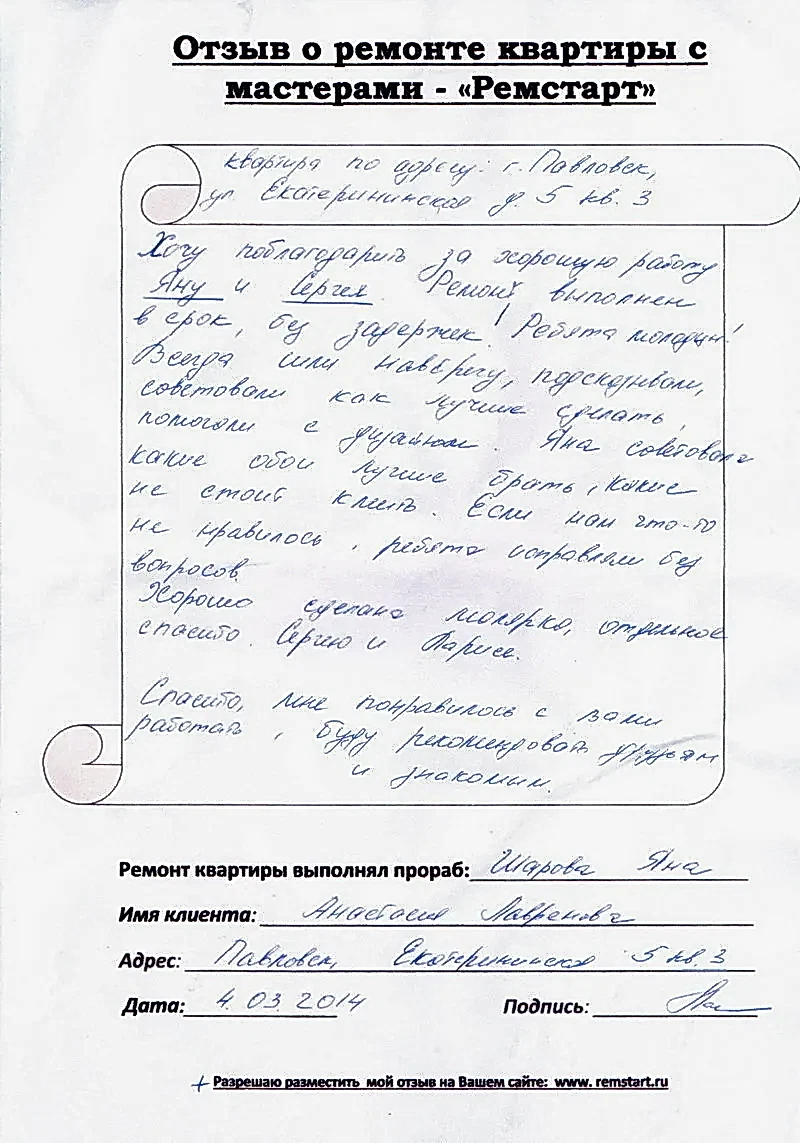 Отзыв о ремонте квартиры с
мастерами - «Ремстарт»
квартира по адресу: г. Павловск,
ул. Екатерининская д. 5 кв. 3
Хочу поблагодарить за хорошую работу
Яну и Сергея. Ремонт выполнен
в срок, без задержек! Ребята молодцы!
Всегда шли навстречу, подсказывали,
советовали как лучше сделать,
помогали с дизайном. Яна советовала
какие обои лучше брать, какие
не стоит клеить. Если нам что-то
не нравилось, ребята исправляли без
вопросов.
Хорошо сделана малярка, отдельное
спасибо Сергею и Ларисе.
Спасибо, мне понравилось с вами
работать, буду рекомендовать друзьям
и знакомым.
Ремонт квартиры выполнял прораб: Шарова Яна
Имя клиента: Анастасия Лавренова
Адрес: Павловск, Екатерининская 5 кв. 3
Дата: 4.03.2014 Подпись:
+ Разрешаю разместить мой отзыв на Вашем сайте: www. remstart.ru